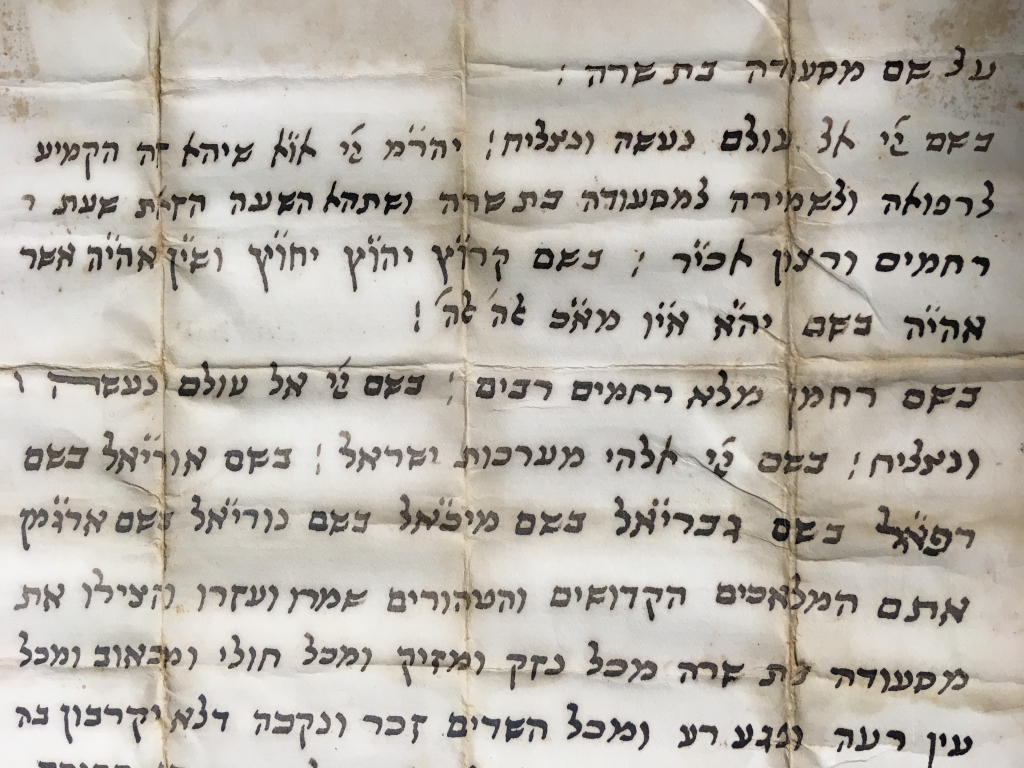 על שם מסעודה בת שרה :
בשם יי אל עולם נעשה ונצליח : יהר״מ יי או״א שיהא זה הקמיע
לרפואה ולשמירה למסעודה בת שרה ושתהא השעה הזאת שעת
רחמים ורצון אכי״ר : בשם קרו״ץ יהו״ץ יחו״ץ אהי״ה אשר
אהי״ה בשם יה״א
בשם רחמן מלא רחמים רבים : בשם יי אל עולם נעשה ו
ונצליח : בשם יי אלהי מערכות ישראל : בשם אורי״אל בשם
רפ״אל בשם גברי״אל בשם מיכ״אל בשם נורי״אל בשם ארגמ״ן
אתם המלאכים הקדושים והטהורים שמרו ועזרו והצילו את
מסעודה בת שרה מכל נזק ומזיק ומכל חולי ומכאוב ומכל
עין רעה ונגע רע ומכל השדים זכר ונקבה דלא יקרבון בה